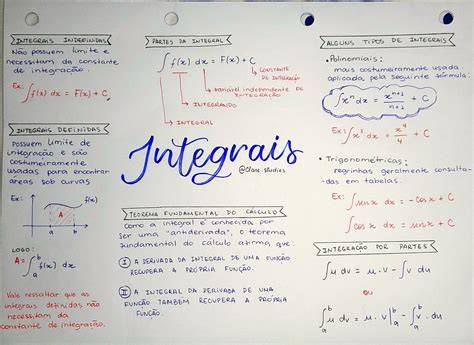 INTEGRAIS INDEFINIDAS
Não possuem limite e
necessitam da constante
de integração.
Ex: ∫f(x) dx = F(x) + C
INTEGRAIS DEFINIDAS
Possuem limite de
integração e são
costumeiramente
usadas para encontrar
áreas sob curvas
Ex:
f(x)
A
a
b
LOGO:
A = ∫ₐᵇ f(x) dx
Vale ressaltar que as
integrais definidas não
necessitam da
constante de integração.
PARTES DA INTEGRAL
∫f(x) dx = F(x) + C
CONSTANTE
DE INTEGRAÇÃO
VARIÁVEL INDEPENDENTE DE
INTEGRAÇÃO
INTEGRANDO
INTEGRAL
Integrais
TEOREMA FUNDAMENTAL DO CÁLCULO
Como a integral é conhecida por
ser uma "antiderivada", o teorema
fundamental do cálculo afirma que:
I A DERIVADA DA INTEGRAL DE UMA FUNÇÃO
RECUPERA A PRÓPRIA FUNÇÃO.
II A INTEGRAL DA DERIVADA DE UMA
FUNÇÃO TAMBÉM RECUPERA A PRÓPRIA
FUNÇÃO.
ALGUNS TIPOS DE INTEGRAIS
• Polinomiais:
mais costumeiramente usada
aplicada pela seguinte fórmula
∫xⁿ dx = xⁿ⁺¹/n+1 + C
Ex: ∫x³ dx = x⁴/4 + C
• Trigonométricas:
regrinhas geralmente consulta-
das em tabelas.
Ex: ∫sen x dx = -cos x + C
∫cos x dx = sen x + C
INTEGRAÇÃO POR PARTES
∫u dv = u.v - ∫v du
ou
∫ₐᵇ u dv = u.v|ₐᵇ - ∫ₐᵇ v.du